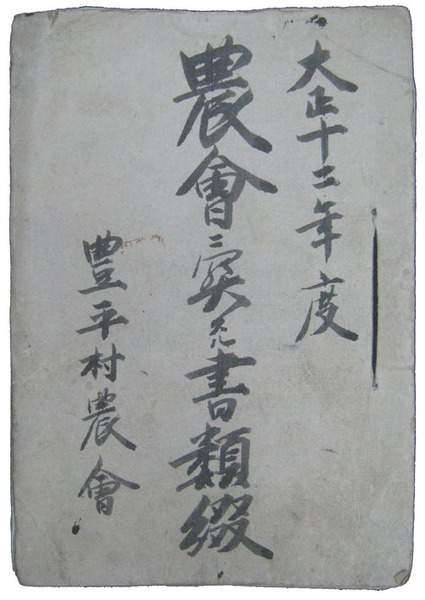 大正十二年度
農會ニ書類綴
豊平村農會